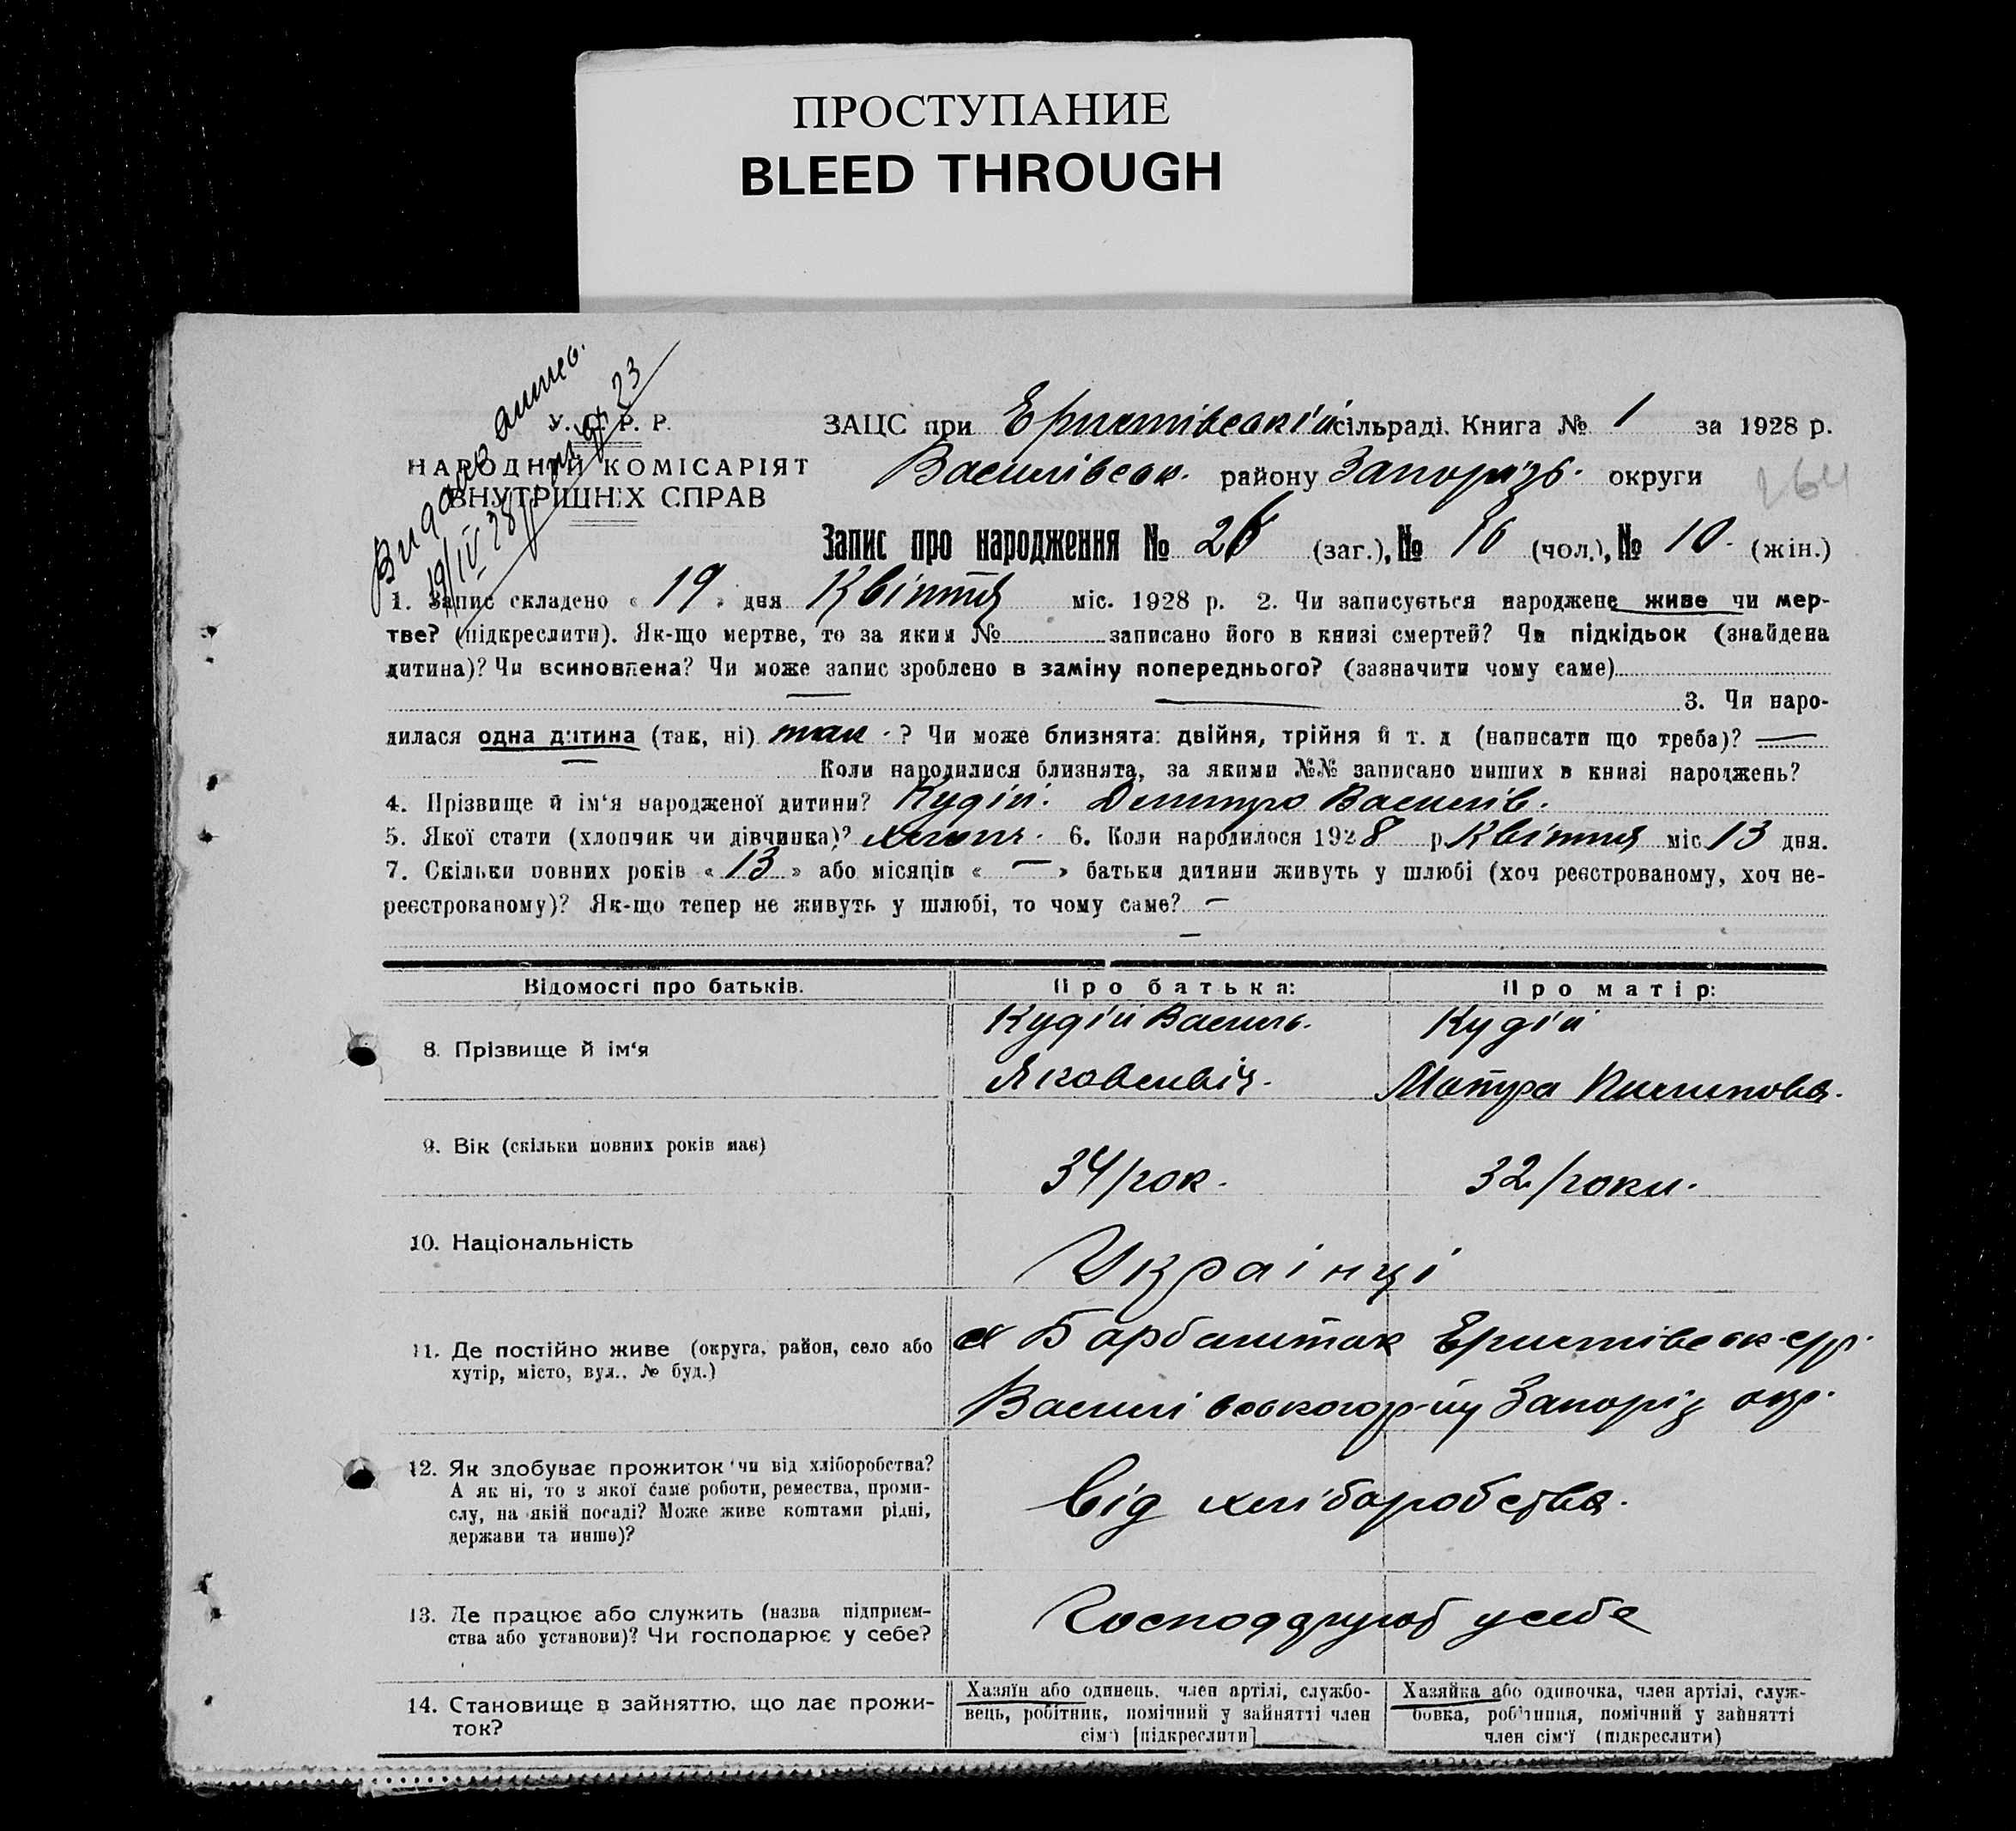 ПРОСТУПАНИЕ
BLEED THROUGH
Видано
19/IV 28 23
У. С. Р. Р.
НАРОДНИЙ КОМІСАРІЯТ
ВНУТРІШНІХ СПРАВ
ЗАЦС при Еристівській сільраді. Книга № 1 за 1928 р.
Василівськ. району Запорізь. округи
264
Запис про народження № 26 (заг.), № 16 (чол.), № 10 (жін.)
1. Запис складено « 19 » дня Квітня міс. 1928 р. 2. Чи записується народжене живе чи мер-
тве? (підкреслити). Як-що мертве, то за яким № записано його в книзі смертей? Чи підкідьок (знайдена
дитина)? Чи всиновлена? Чи може запис зроблено в заміну попереднього? (зазначити чому саме)
— — 3. Чи наро-
дилася одна дитина (так, ні) так. ? Чи може близнята: двійня, трійня й т. д (написати що треба)? —
— Коли народилися близнята, за якими №№ записано инших в книзі народжень?
4. Прізвище й ім'я народженої дитини? Кудій. Дмитро Василів.
5. Якої стати (хлопчик чи дівчинка)? хлопч. 6. Коли народилося 1928 р. Квітня міс 13 дня.
7. Скільки повних років « 13 » або місяців « — » батьки дитини живуть у шлюбі (хоч реєстрованому, хоч не-
реєстрованому)? Як-що тепер не живуть у шлюбі, то чому саме? —
—
Відомості про батьків. Про батька: Про матір:
8. Прізвище й ім'я Кудій Василь. Яковлевіч. Кудій Мотря Пилипова.
9. Вік (скільки повних років має) 34/рок. 32/роки.
10. Національність Украінці
11. Де постійно живе (округа, район, село або
хутір, місто, вул., № буд.)
х Барбаштак Еристівськ с/р.
Василівського р-ну Запоріз окр.
12. Як здобуває прожиток чи від хліборобства?
А як ні, то з якої саме роботи, ремества, проми-
слу, на якій посаді? Може живе коштами рідні,
держави та инше)?
від хліборобства.
13. Де працює або служить (назва підприєм-
ства або установи)? Чи господарює у себе?
у себе
14. Становище в зайняттю, що дає прожи-
ток?
Хазяїн або одинець, член артілі, службо-
вець, робітник, помічний у зайнятті член
сім'ї [підкреслити]
Хазяйка або одиночка, член артілі, служ-
бовка, робітниця, помічний у зайнятті
член сім'ї (підкреслити)